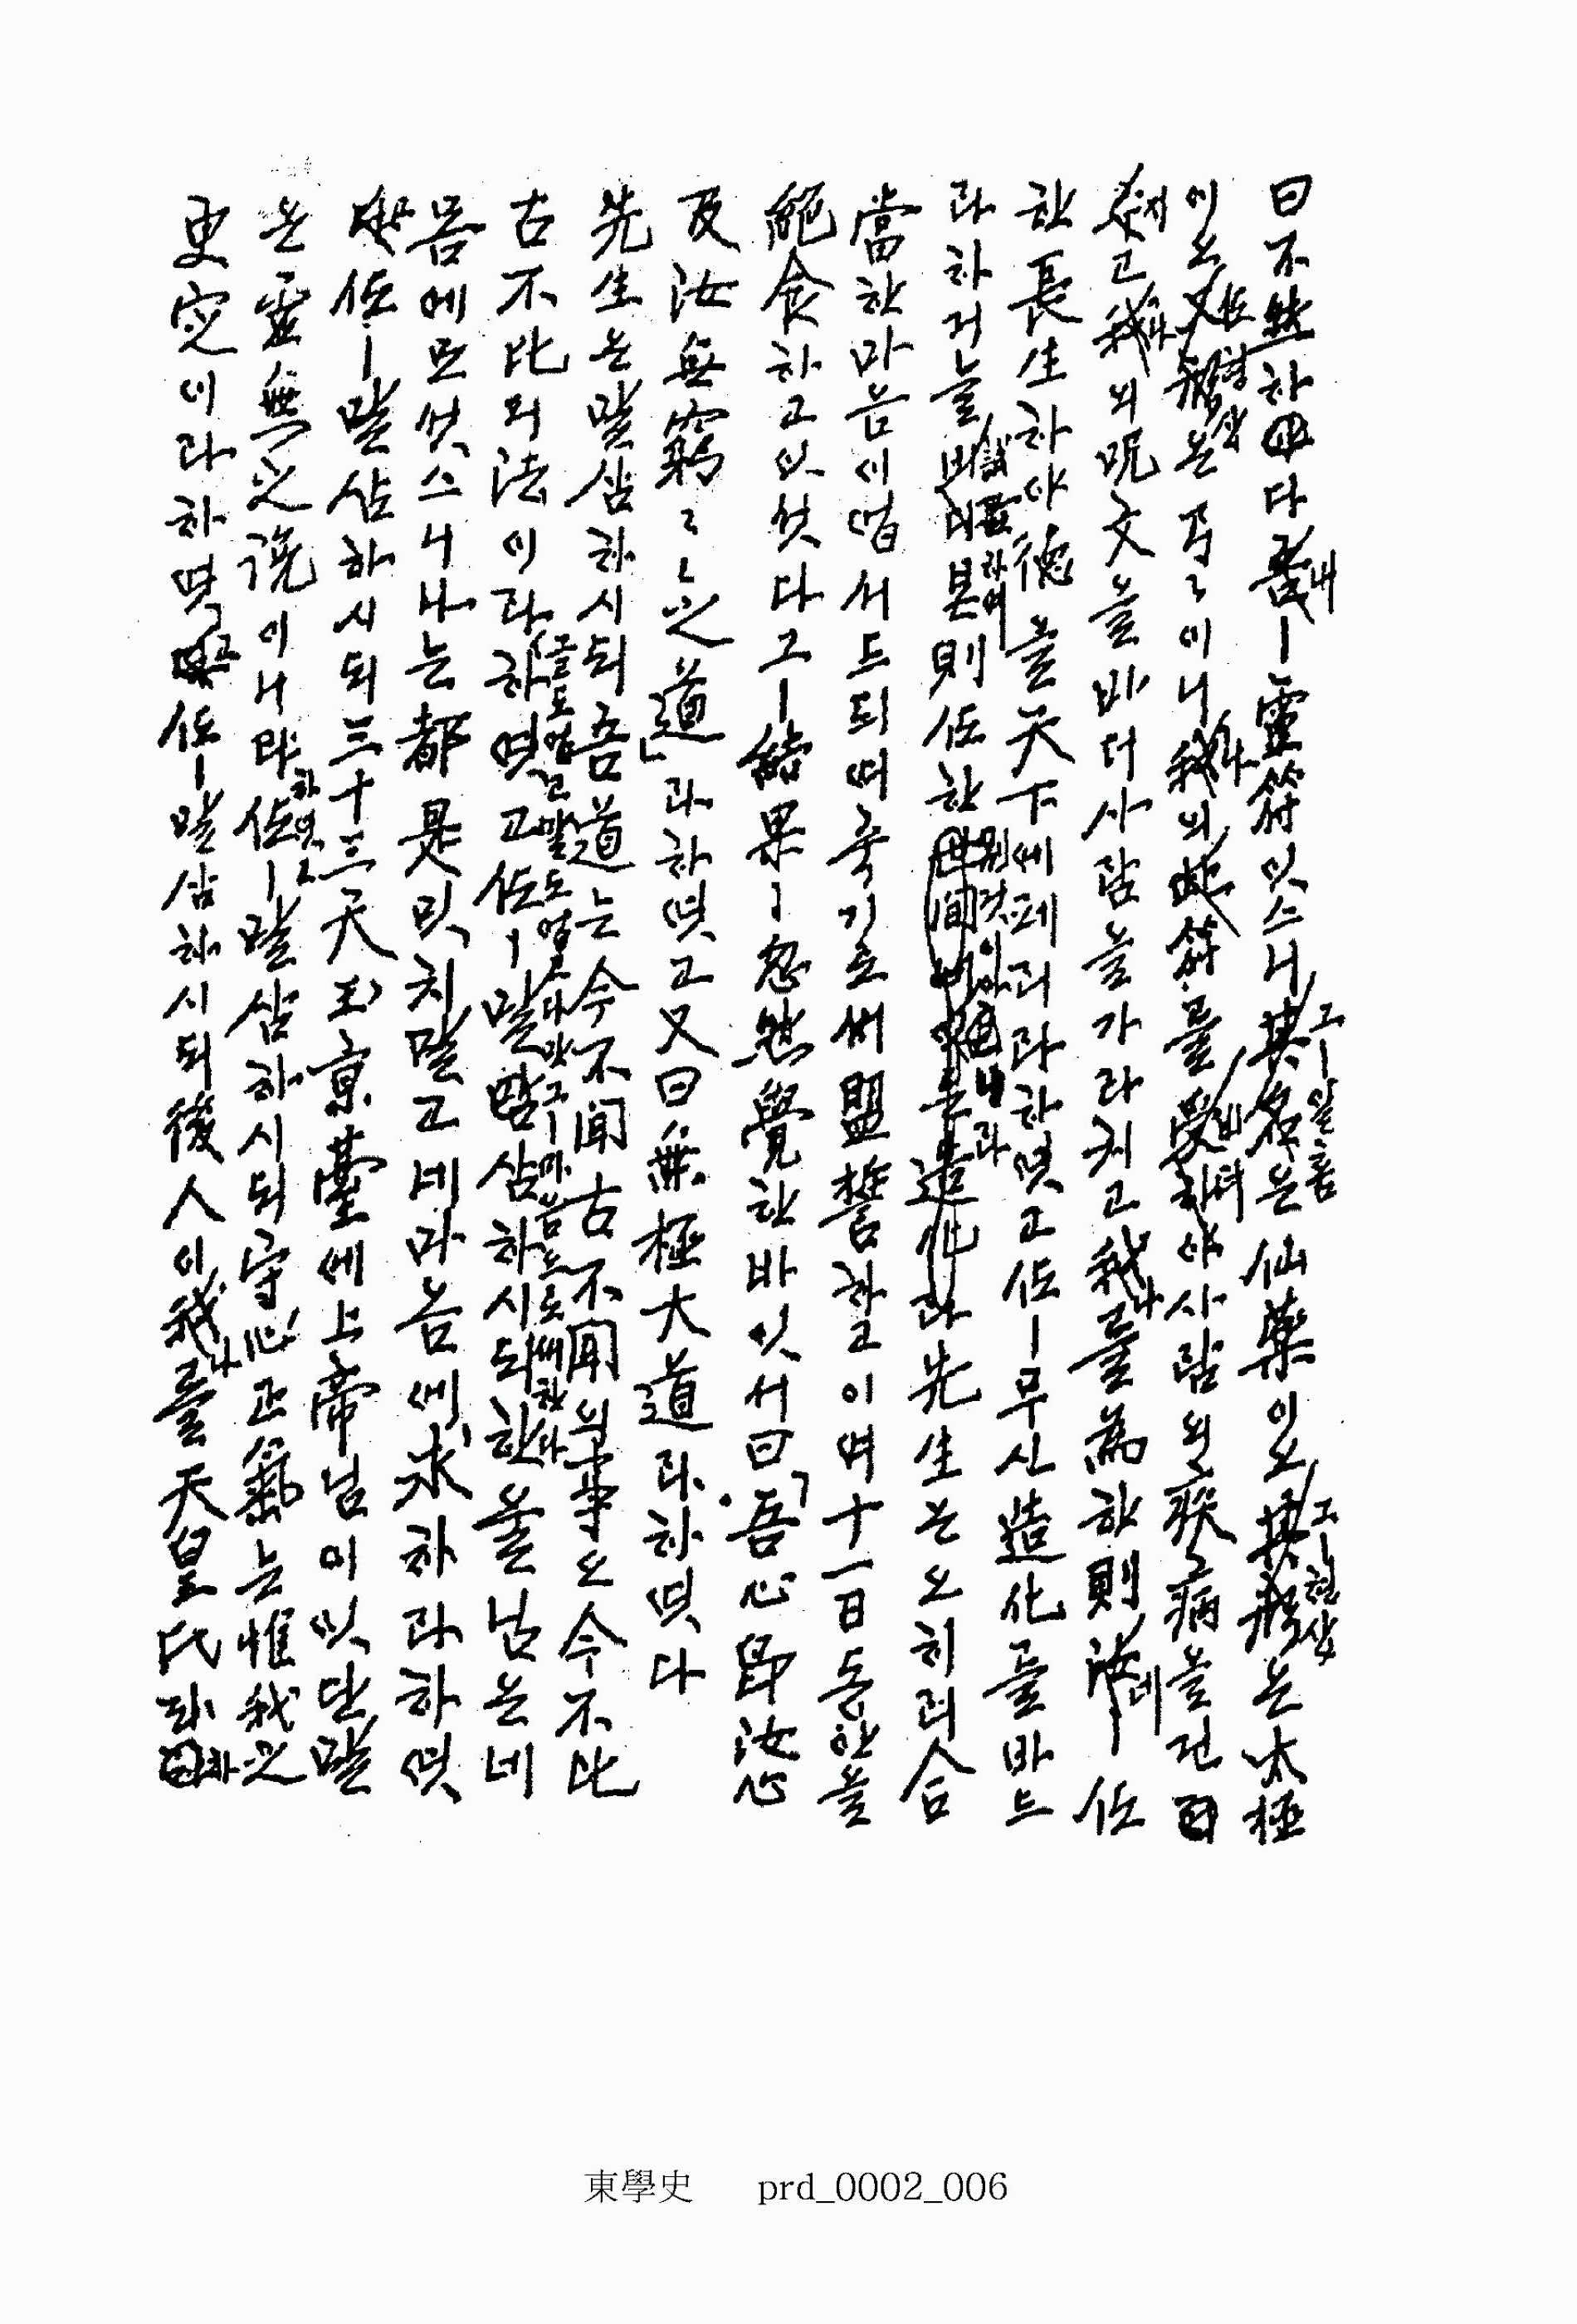 曰不然하다 내ー靈符잇스니 그ー일홈은 仙藥이오 그ー현상은 太極
이오 又 형상은 弓弓이니 나의 符를 바더야 사람의 疾病을 건
지고 나의 呪文을 바더 사람을 가라치고 나를 爲한則 네ー 亦
한 長生하야 德을 天下에 페리라 하엿고 亦ー무산 造化를 바드
라 하거늘 則 亦한 造化라 先生은 오히려 合
當한 마음이 업서 드되여 죽기로써 盟誓하고 이여 十一日 동안을
絶食하고 잇섯다 그ー 結果ー 忽然覺한 바 잇서 曰「吾心卽汝心
及汝無窮窮之道」라 하엿고 又曰 無極大道라 하엿다
先生은 말삼하시되 吾道는 今不聞古不聞의 事오 今不比
古不比의 法이라 하엿고 亦ー 말삼하시되 한울님은 네
몸에 모섯스니 나는 都是 밋지 말고 네 마음에 求하라 하엿
고 亦ー 말삼하시되 三十三天 玉京臺에 上帝님이 잇단 말
은 虛無之說이니라 하엿고 亦ー 말삼하시되 守心正氣는 惟我之
更定이라 하엿고 亦ー 말삼하시되 後人이 나를 天皇氏라 하
東學史 prd_0002_006